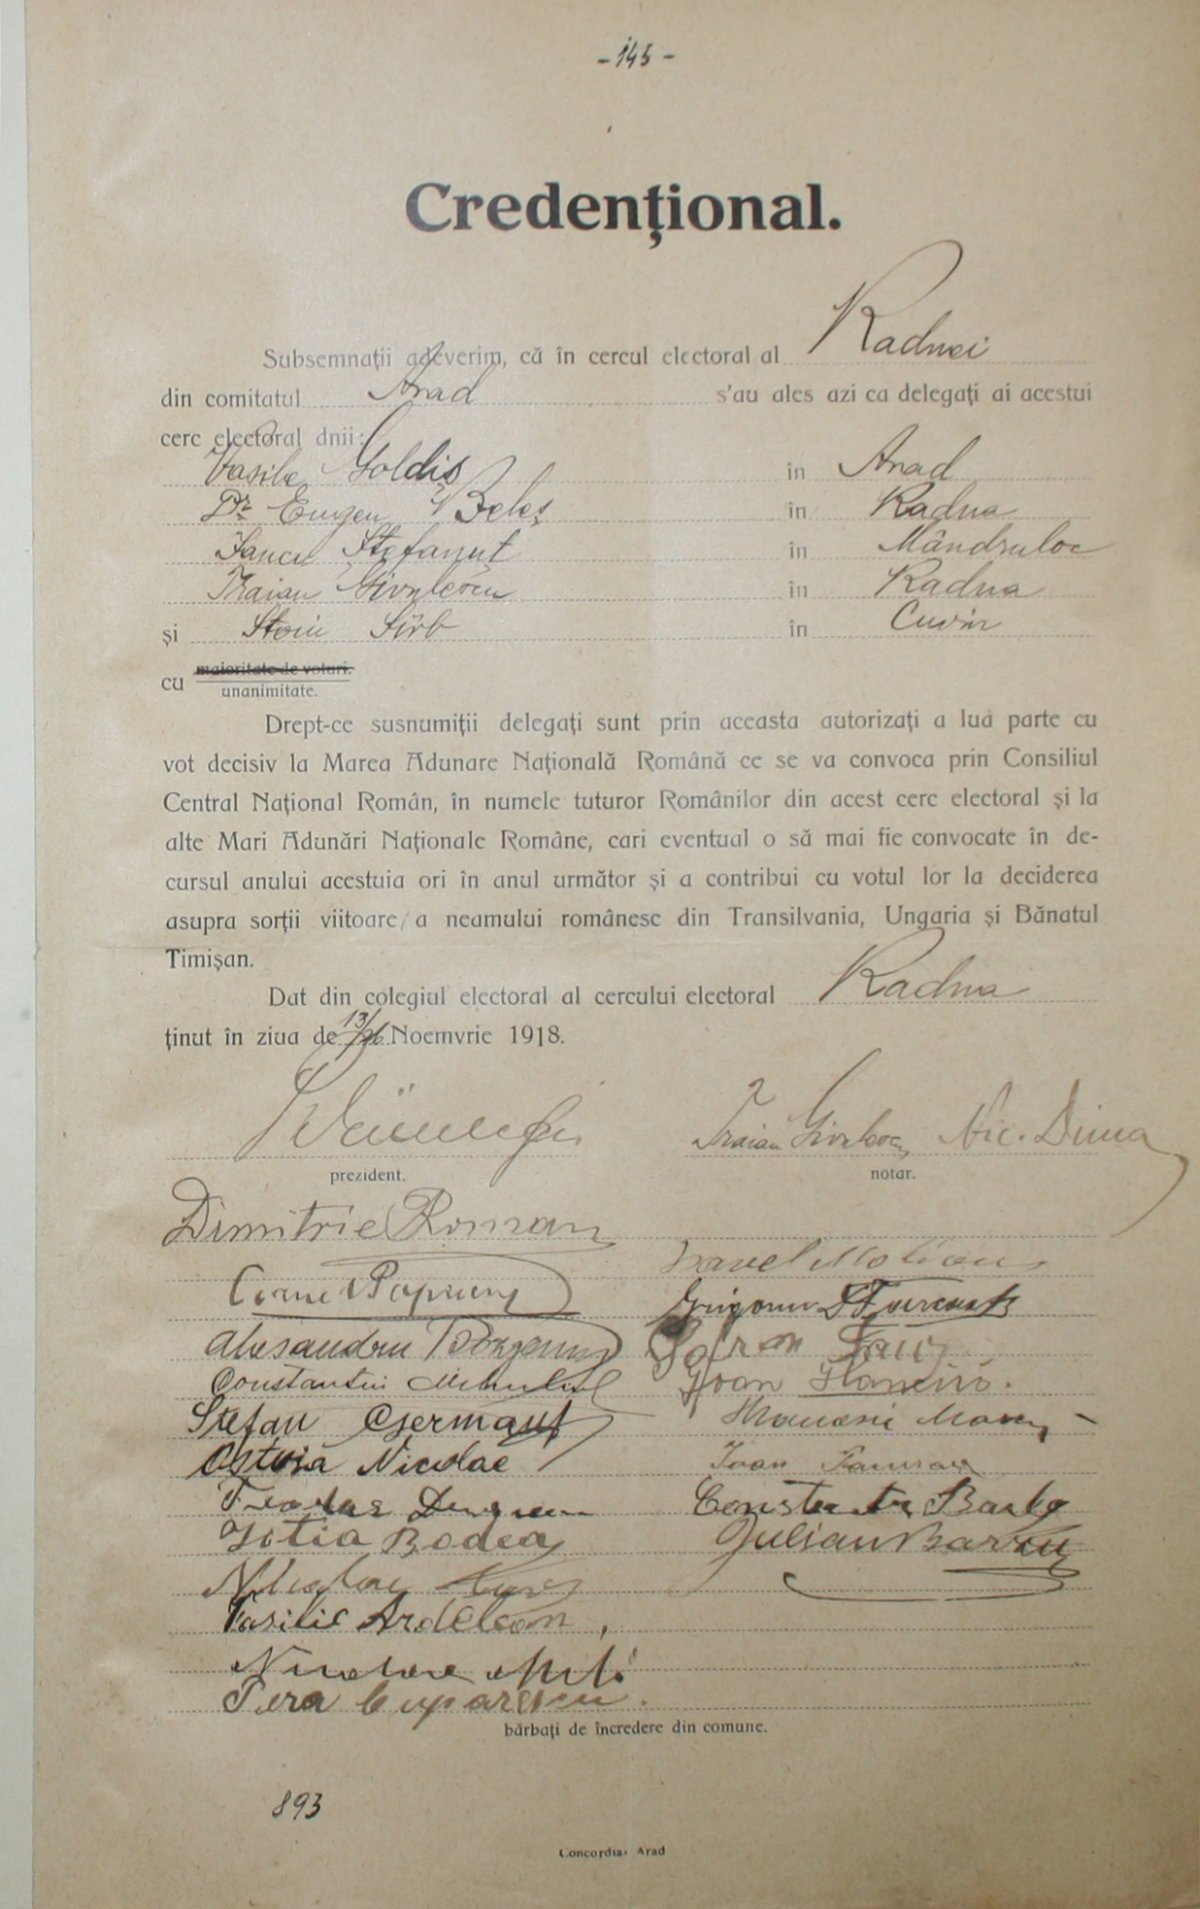 - 145 -
Credențional.
Subsemnații adeverim, că în cercul electoral al Radnei
din comitatul Arad s'au ales azi ca delegați ai acestui
cerc electoral dnii:
Vasile Goldiș în Arad
Dr Eugen Beleș în Radna
Iancu Ștefănuț în Mândruloc
Traian Givulescu în Radna
și Stoiu Sîrb în Cuvin
cu maioritate de voturi.
unanimitate.
Drept-ce susnumiții delegați sunt prin aceasta autorizați a lua parte cu
vot decisiv la Marea Adunare Națională Română ce se va convoca prin Consiliul
Central Național Român, în numele tuturor Românilor din acest cerc electoral și la
alte Mari Adunări Naționale Române, cari eventual o să mai fie convocate în de-
cursul anului acestuia ori în anul următor și a contribui cu votul lor la deciderea
asupra sorții viitoare a neamului românesc din Transilvania, Ungaria și Bănatul
Timișan.
Dat din colegiul electoral al cercului electoral Radna
ținut în ziua de 13/26 Noemvrie 1918.
Traian Nic. Dima
prezident. notar.
Dimitrie Roman
Pavel
Cornel Grigoriu
Alesandru
Constantin Ioan
Stefan Germanuț
Nicolae Ioan
Constantin
Sofia Bodea Iulian
Vasilie Ardelean,
Nicolae
Pera
bărbați de încredere din comune.
893
Concordia, Arad